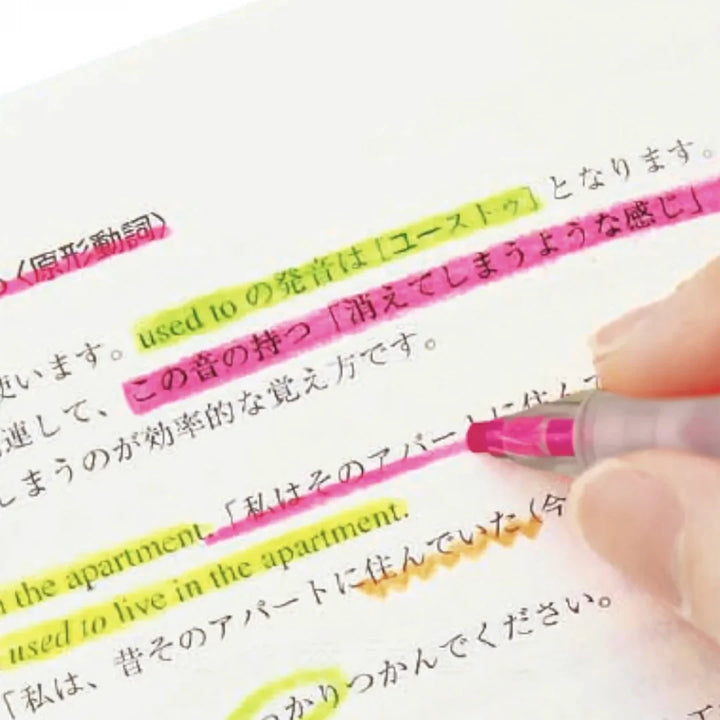 〈原形動詞〉
used to の発音は［ユーストゥ］となります。
使います。この音の持つ「消えてしまうような感じ」
連して、しまうのが効率的な覚え方です。
the apartment.「私はそのアパートに住んで
used to live in the apartment.
「私は、昔そのアパートに住んでいた（今
っかりつかんでください。